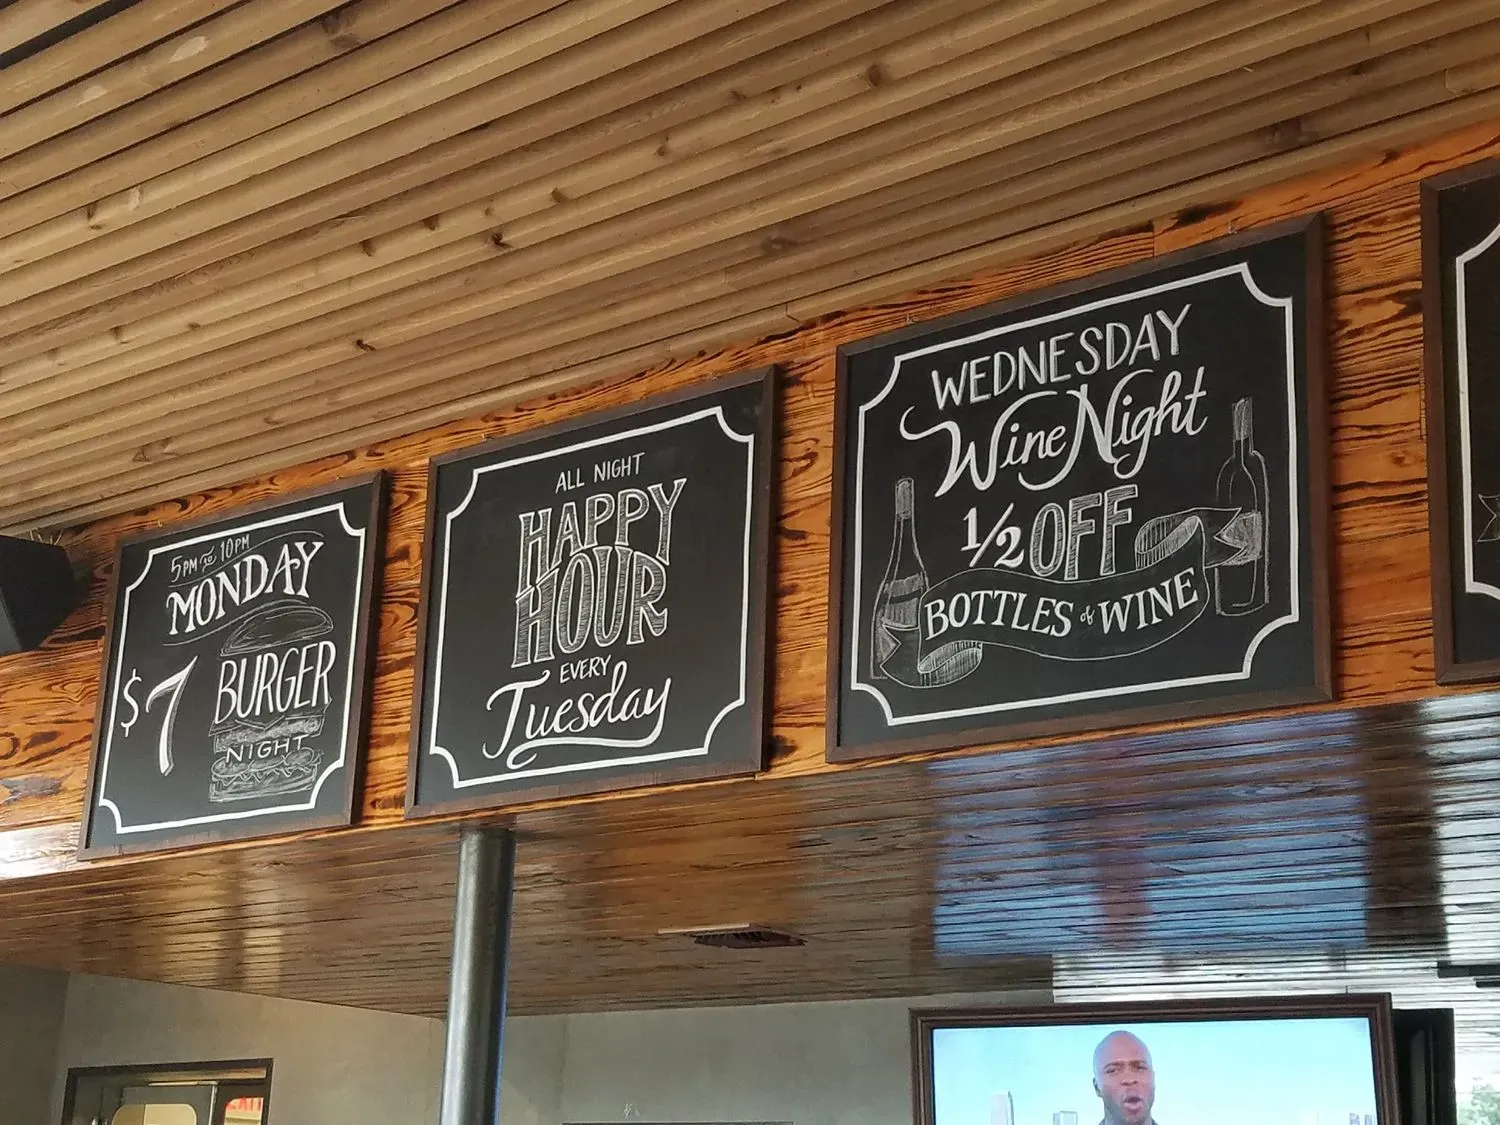 5PM to 10PM
MONDAY
$7
BURGER
NIGHT
ALL NIGHT
HAPPY
HOUR
EVERY
Tuesday
WEDNESDAY
Wine Night
1/2 OFF
BOTTLES of WINE
EXIT